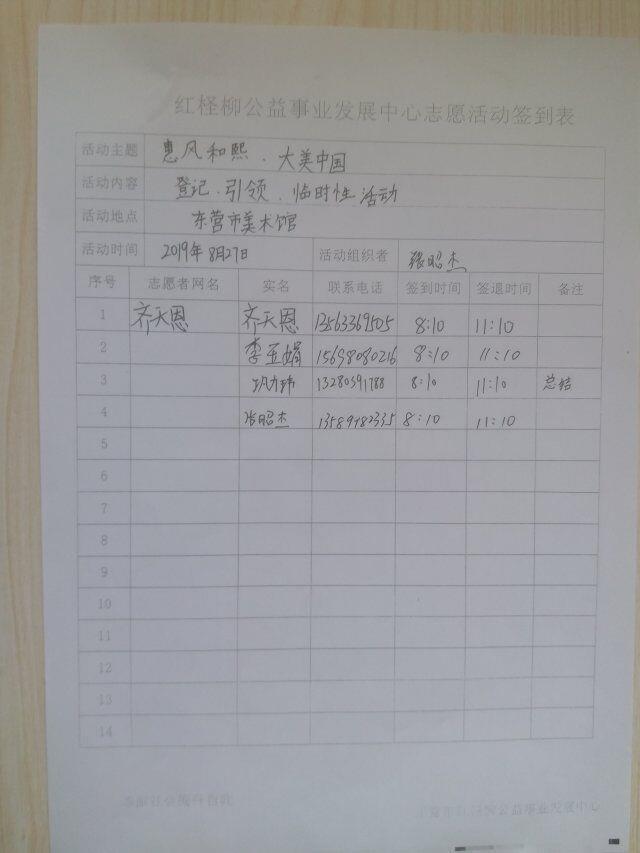 红柽柳公益事业发展中心志愿活动签到表
活动主题 惠风和熙·大美中国
活动内容 登记、引领、临时性活动
活动地点 东营市美术馆
活动时间 2019年8月27日 活动组织者 张昭杰
序号 志愿者网名 实名 联系电话 签到时间 签退时间 备注
1 齐天恩 齐天恩 13563369505 8:10 11:10
2 李亚娟 15698080216 8:10 11:10
3 13280391788 8:10 11:10 总结
4 张昭杰 13589982335 8:10 11:10
5
6
7
8
9
10
11
12
13
14